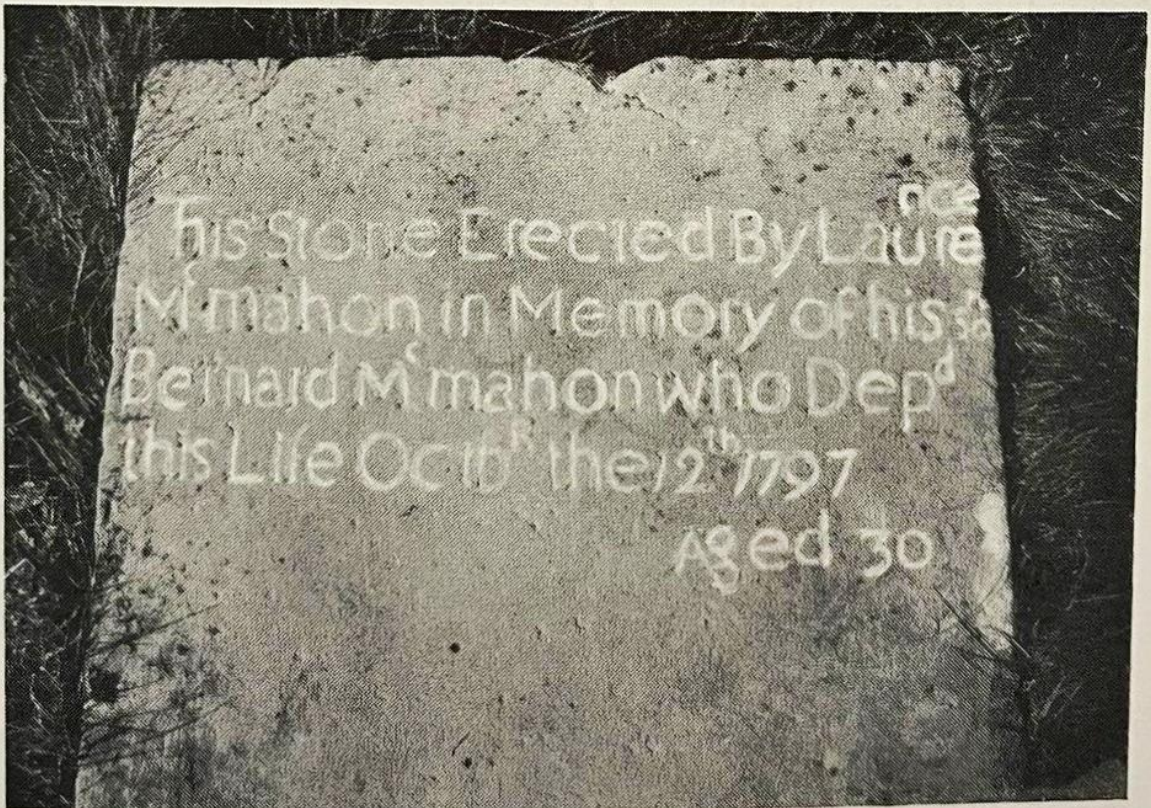 This Stone Erected By Laurence
Mcmahon in Memory of his son
Bernard Mcmahon who Depd
this Life OctbR the 12th 1797
Aged 30